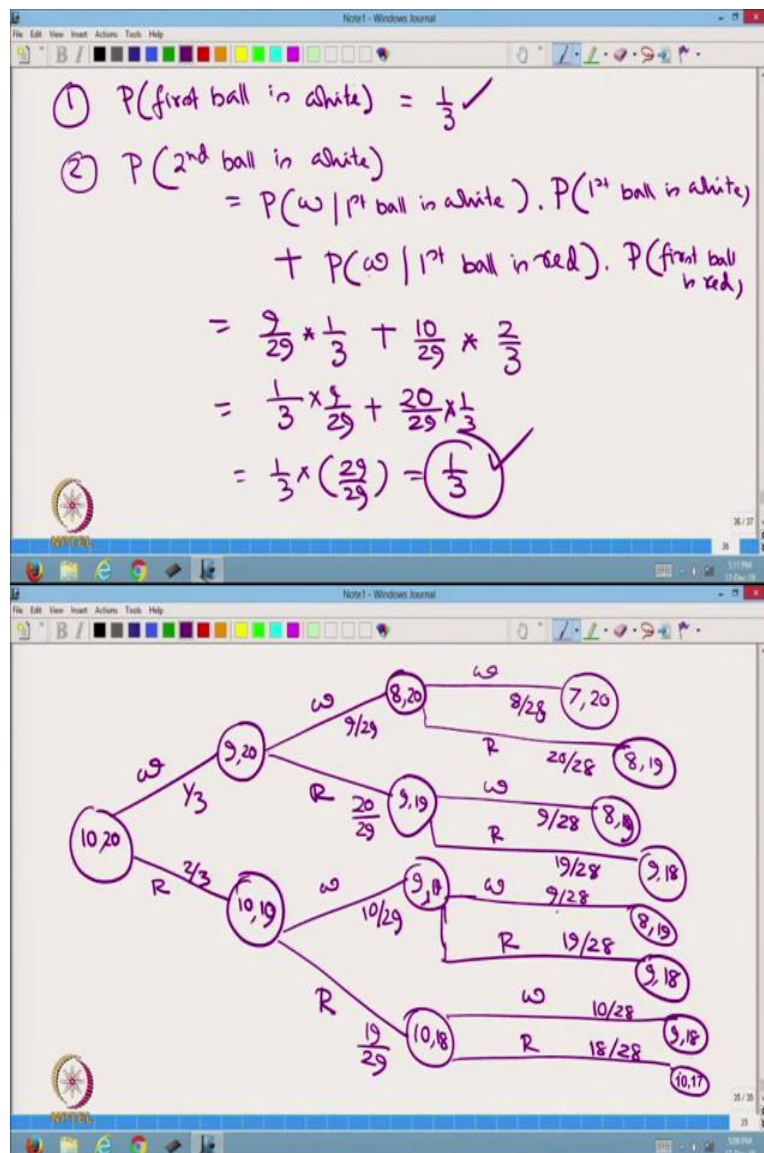 Note1 - Windows Journal
File Edit View Insert Actions Tools Help
① P(first ball is white) = 1/3 ✓
② P(2nd ball is white)
= P(W | 1st ball is white) . P(1st ball is white)
+ P(W | 1st ball is red) . P(first ball is red)
= 9/29 * 1/3 + 10/29 * 2/3
= 1/3 × 9/29 + 20/29 × 1/3
= 1/3 × (29/29) = 1/3 ✓
NPTEL
36 / 37
36
5:11 PM
17-Dec-18
Note1 - Windows Journal
File Edit View Insert Actions Tools Help
W 8/28 7,20
W 9/29 8,20
R 20/28 8,19
W 1/3 9,20
R 20/29 9,19
W 9/28 8,19
R 19/28 9,18
10,20
R 2/3 10,19
W 10/29
W 9/28 8,19
R 19/28 9,18
R 19/29 10,18
W 10/28 9,18
R 18/28 10,17
NPTEL
35 / 35
35
5:08 PM